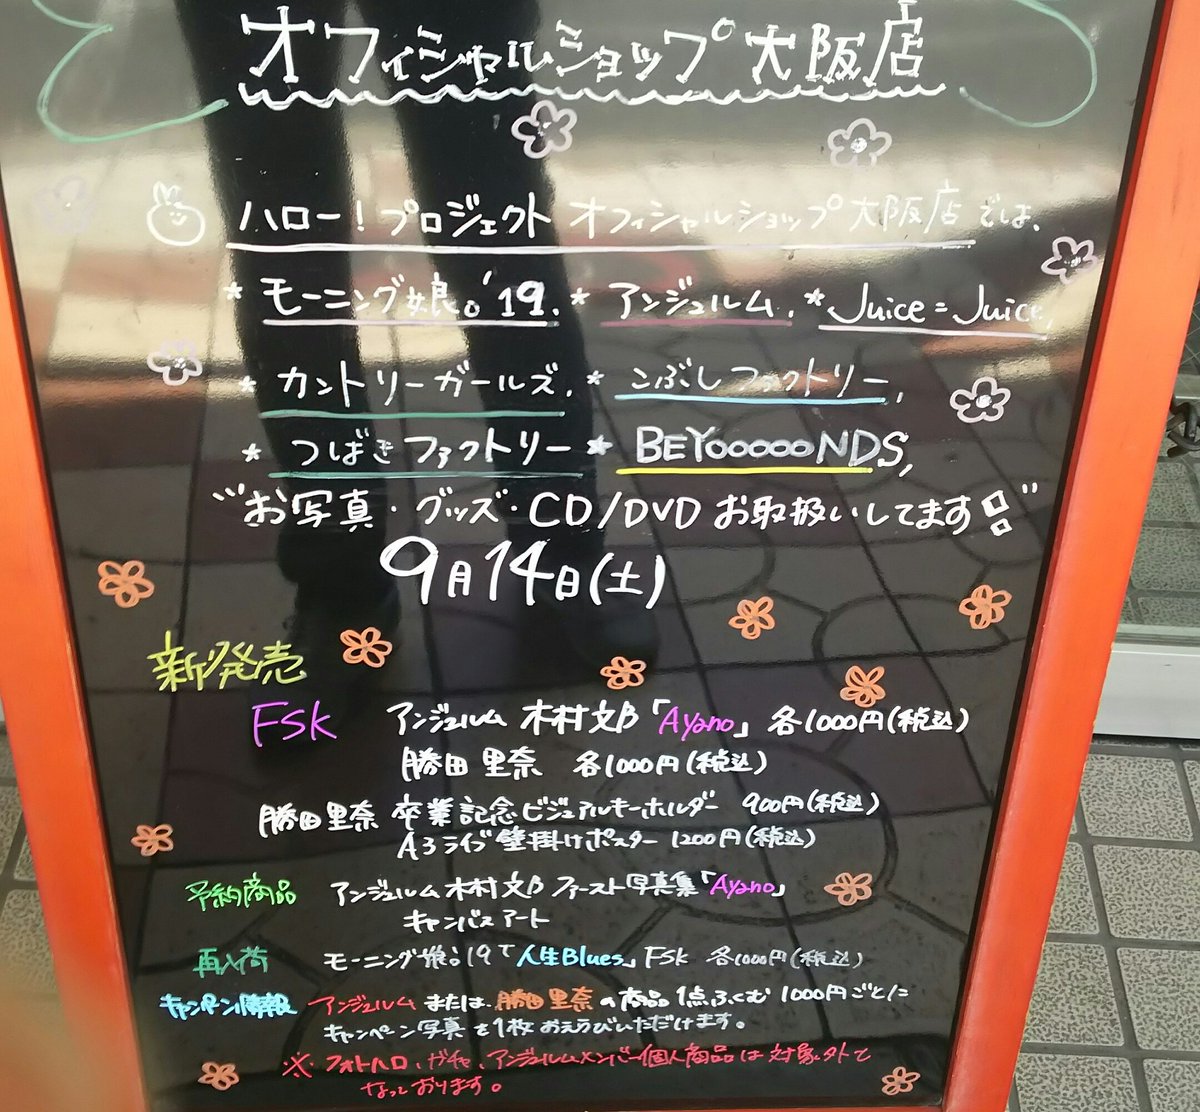 オフィシャルショップ 大阪店
ハロー!プロジェクト オフィシャルショップ 大阪店 では、
* モーニング娘。'19. * アンジュルム. * Juice=Juice,
* カントリーガールズ. * こぶしファクトリー,
* つばきファクトリー * BEYOOOOONDS,
お写真・グッズ・CD/DVD お取扱いしてます!!
9月14日(土)
新発売
FSK アンジュルム 木村文郎「Ayano」各1000円(税込)
勝田里奈 各1000円(税込)
勝田里奈 卒業記念ビジュアルキーホルダー 900円(税込)
A3ライブ壁掛けポスター 1200円(税込)
予約商品 アンジュルム木村文郎 ファースト写真集「Ayano」
キャンバスアート
再入荷 モーニング娘。'19「人生Blues」FSK 各1000円(税込)
キャンペーン情報 アンジュルム または、勝田里奈の商品1点ふくむ 1000円ごとに
キャンペーン写真を1枚おえらびいただけます。
※フォトハロ、ガチャ、アンジュルムメンバー個人商品は対象外と
なっております。